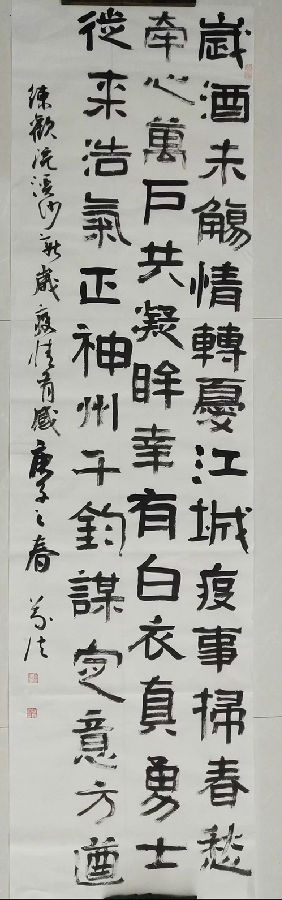 歲酒未觴情轉憂江城疫事掃春愁
牽心萬戶共凝眸幸有白衣真勇士
從來浩氣正神州千鈞謀定意方遒
浣溪沙新歲疫情有感庚子之春